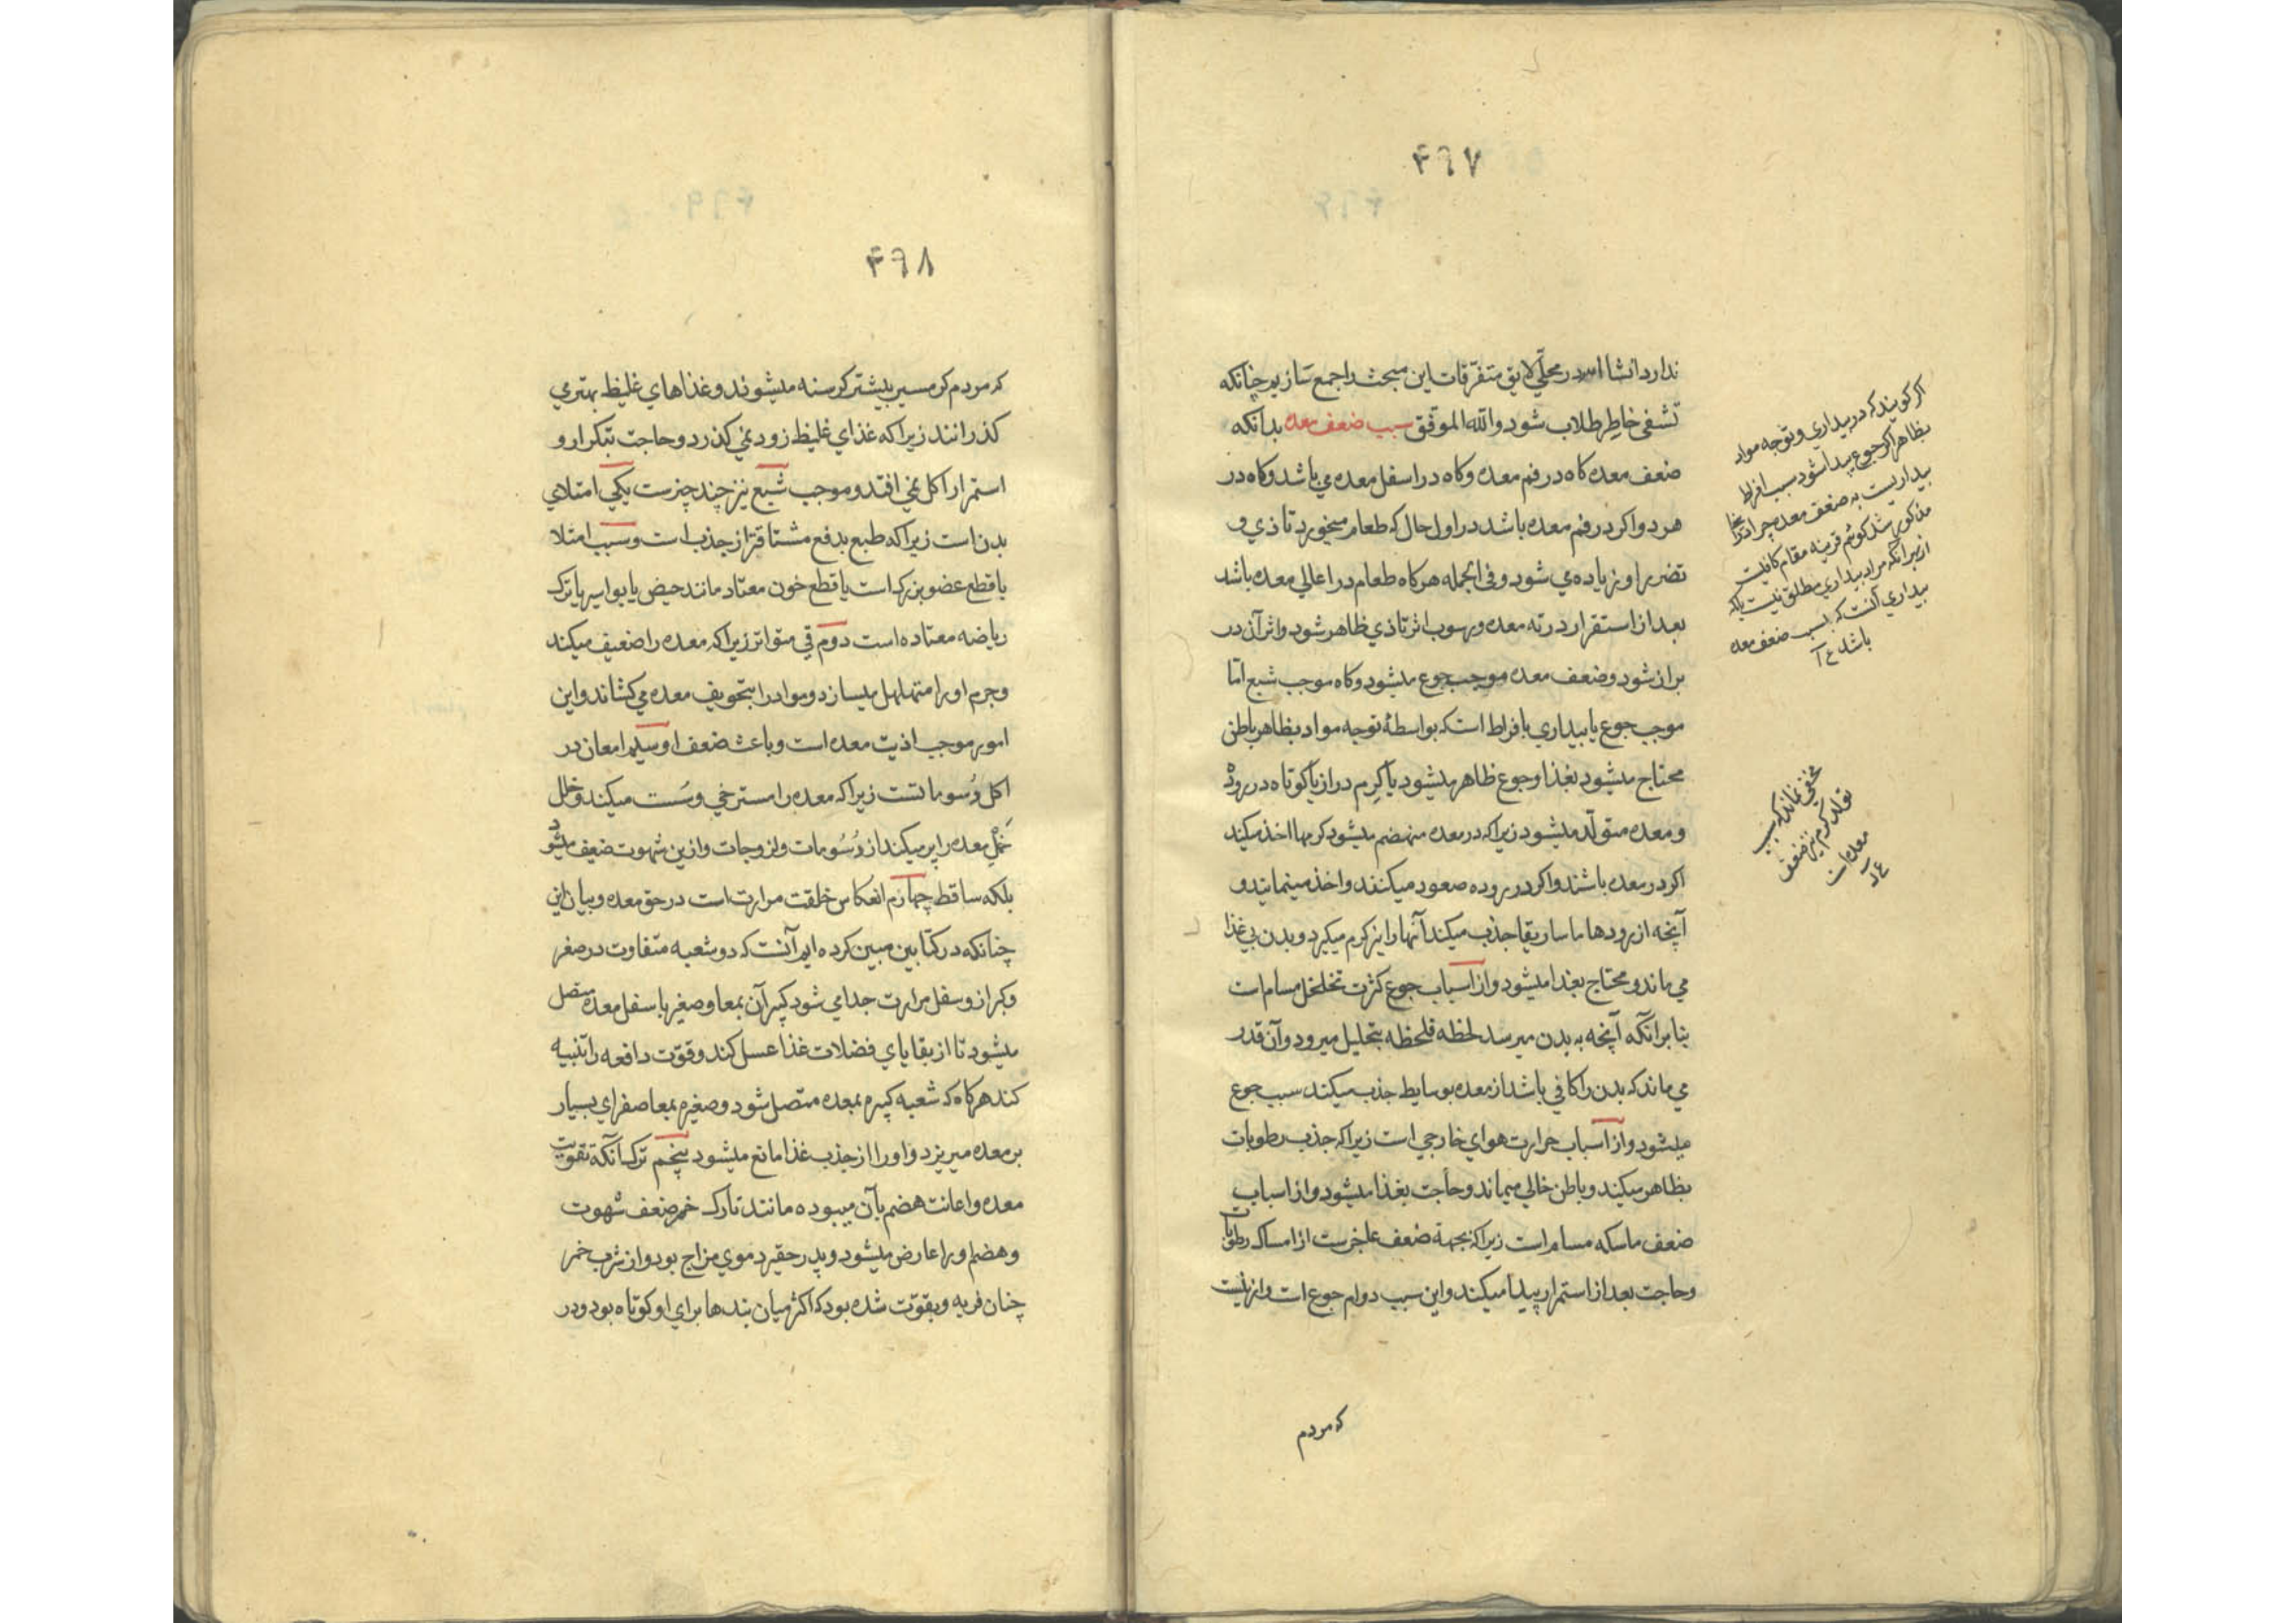 ۴۶۷
ندارد انشا الله در محلّی لایق متفرّقات این مبحث را جمع سازیم چنانکه
تشفی خاطر طلاب شود والله الموفق سبب ضعف معده بدانکه
ضعف معده کاه در فم معده وکاه در اسفل معده می باشد وکاه در
هر دو اکر در فم معده باشد در اول حال که طعام میخورد تاذی و
تضرر او زیاده می شود و فی الجمله هرکاه طعام در اعالی معده باشد
بعد از استقرار در ته معده و رسوب اثر تاذی ظاهر شود واثر آن در
براز شود وضعف معده موجب جوع میشود وکاه موجب شبع امّا
موجب جوع یا بیداری بافراط است که بواسطهٔ توجه مواد بظاهر باطن
محتاج میشود بغذا وجوع ظاهر میشود یا کرم دراز یا کوتاه در روده
و معده متولّد میشود زیرا که در معده منهضم میشود کرمها اخذ میکند
اکر در معده باشند واکر در روده صعود میکنند واخذ مینمایند و
آنچه از رودها ماساریقا جذب میکند آنها را نیز کرم میکیرد و بدن بی غذا
می ماند و محتاج بغذا میشود واز اسباب جوع کثرت تخلخل مسام است
بنا برانکه آنچه به بدن میرسد لحظه فلحظه بتحلیل میرود وآن قدر
می ماند که بدن را کافی باشد از معده بوسایط جذب میکند سبب جوع
میشود واز اسباب حرارت هوای خارجی است زیرا که جذب رطوبات
بظاهر میکند و باطن خالی میماند وحاجت بغذا میشود واز اسباب
ضعف ماسکه مسام است زیرا که بجهة ضعف عاجزست از امساک رطوبات
وحاجت بعد از استمرار پیدا میکند واین سبب دوام جوع است وازینست
که مردم
اکر کویند که در بیداری و توجه مواد
بظاهر اکر جوع پیدا شود سبب افراط
بیداریست نه ضعف معده چرا درینجا
مذکور شد کوئیم قرینه مقام کافیست
ازبرانکه مراد بیداری مطلق نیست بلکه
بیداری آنست که بسبب ضعف معده
باشد
مخفی نماند که سبب
تولد کرم نیز ضعف
معده است
۴۶۸
که مردم کرمسیر بیشتر کرسنه میشوند وغذاهای غلیظ بهتر می
کذرانند زیرا که غذای غلیظ زود نمی کذرد وحاجت بتکرار و
استمرار اکل نمی افتد و موجب شبع نیز چند چیزست یکی امتلای
بدن است زیرا که طبع بدفع مشتاقتر از جذب است وسبب امتلا
یا قطع عضو بزرک است یا قطع خون معتاد مانند حیض یا بواسیر یا ترک
ریاضه معتاده است دوم قی متواتر زیرا که معده را ضعیف میکند
وجرم او را متهلهل میسازد و مواد را بتجویف معده می کشاند واین
امور موجب اذیت معده است وباعث ضعف او سیم امعان در
اکل دُسوماتست زیرا که معده را مسترخی وسُست میکند وخلل
خَملِ معده را پر میکند از دُسُومات ولزوجات وازین شهوت ضعیف میشود
بلکه ساقط چهارم انعکاس خلقت مرارت است در حق معده وبیان این
چنانکه در کتابین مبین کرده ایم آنست که دو شعبه متفاوت در صغر
وکبر از وسفل مرارت جدا می شود کبیر آن بمعا وصغیر باسفل معده متصل
میشود تا از بقایای فضلات غذا عسل کند وقوّت دافعه را تنبیه
کند هرکاه که شعبه کبیره بمعده متصل شود وصغیره بمعا صفرای بسیار
بر معده میریزد واو را از جذب غذا مانع میشود پنجم ترک آنکه تقویت
معده واعانت هضم بآن میبوده مانند تارک خمر ضعف شهوت
وهضم او را عارض میشود وپدر حقیر دموی مزاج بود واز شرب خمر
چنان فربه وبقوّت شده بود که اکثر میان بندها برای او کوتاه بود ودر